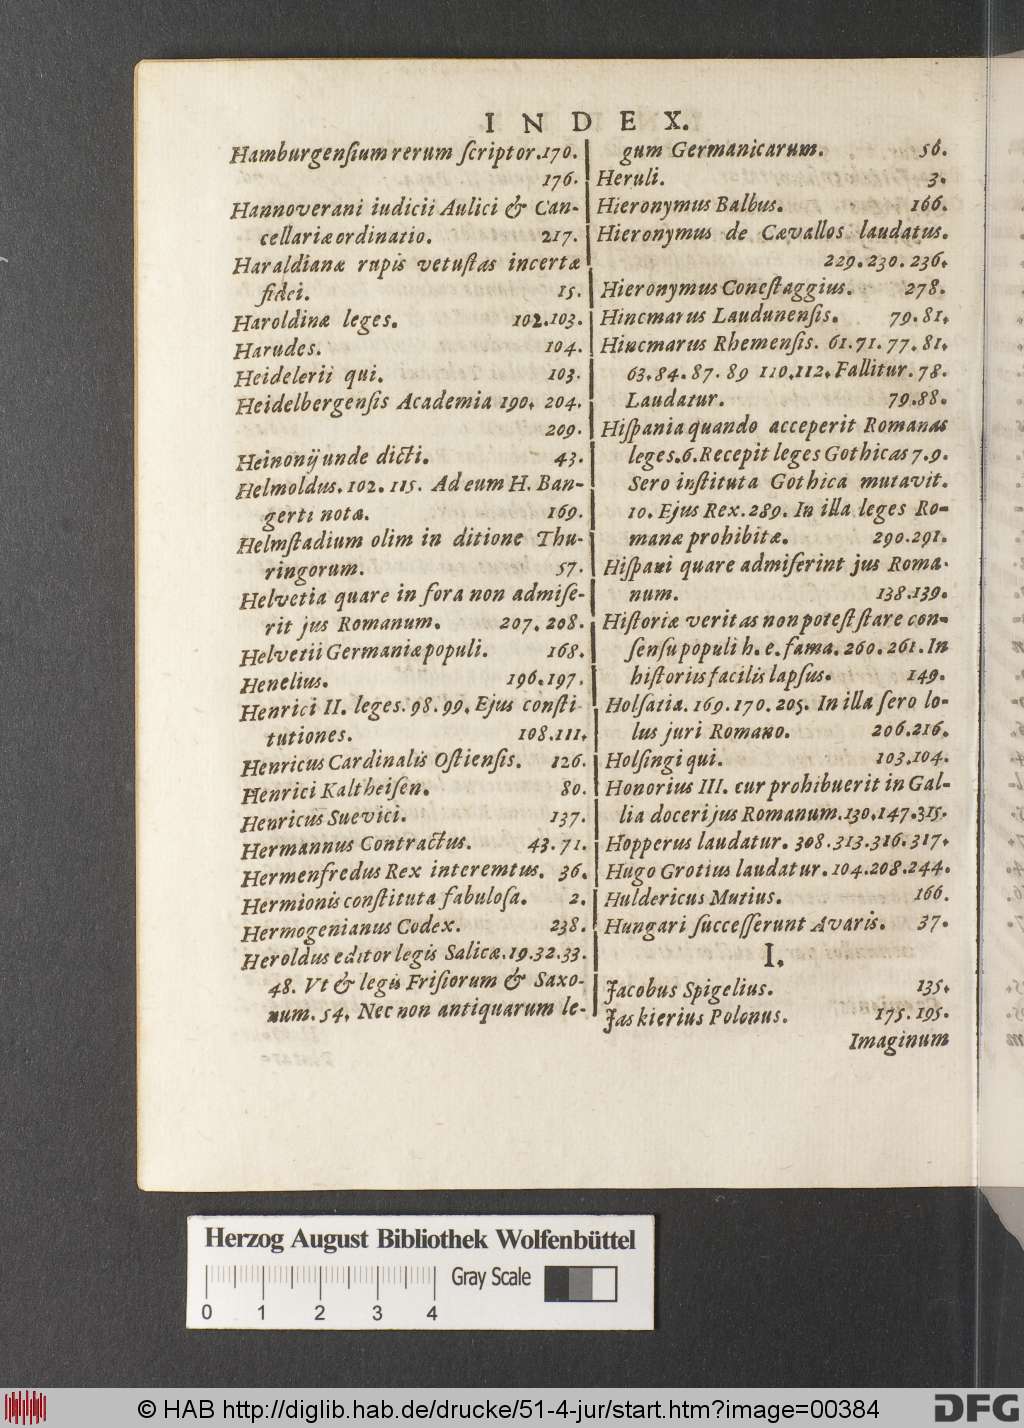 INDEX.
Hamburgensium rerum scriptor. 170.
176.
Hannoverani iudicii Aulici & Can-
cellariæ ordinatio. 217.
Haraldianæ rupis vetustas incertæ
fidei. 15.
Haroldinæ leges. 102.103.
Harudes. 104.
Heidelerii qui. 103.
Heidelbergensis Academia 190. 204.
209.
Heinonij unde dicti. 43.
Helmoldus. 102. 115. Ad eum H. Ban-
gerti notæ. 169.
Helmstadium olim in ditione Thu-
ringorum. 57.
Helvetia quare in fora non admise-
rit jus Romanum. 207. 208.
Helvetii Germaniæ populi. 168.
Henelius. 196.197.
Henrici II. leges. 98. 99. Ejus consti-
tutiones. 108.111.
Henricus Cardinalis Ostiensis. 126.
Henrici Kaltheisen. 80.
Henricus Suevici. 137.
Hermannus Contractus. 43.71.
Hermenfredus Rex interemtus. 36.
Hermionis constituta fabulosa. 2.
Hermogenianus Codex. 238.
Heroldus editor legis Salicæ. 19.32.33.
48. Vt & legis Frisiorum & Saxo-
num. 54. Nec non antiquarum le-
gum Germanicarum. 56.
Heruli. 3.
Hieronymus Balbus. 166.
Hieronymus de Cævallos laudatus.
229.230.236.
Hieronymus Conestaggius. 278.
Hincmarus Laudunensis. 79.81.
Hincmarus Rhemensis. 61.71.77.81.
63.84.87.89 110.112. Fallitur. 78.
Laudatur. 79.88.
Hispania quando acceperit Romanas
leges. 6. Recepit leges Gothicas 7.9.
Sero instituta Gothica mutavit.
10. Ejus Rex. 289. In illa leges Ro-
manæ prohibitæ. 290.291.
Hispani quare admiserint jus Roma-
num. 138.139.
Historiæ veritas non potest stare con-
sensu populi h. e. fama. 260.261. In
historiis facilis lapsus. 149.
Holsatia. 169.170.205. In illa sero lo-
lus juri Romano. 206.216.
Holsingi qui. 103.104.
Honorius III. cur prohibuerit in Gal-
lia doceri jus Romanum. 130.147.315.
Hopperus laudatur. 308.313.316.317.
Hugo Grotius laudatur. 104.208.244.
Huldericus Mutius. 166.
Hungari successerunt Avaris. 37.
I.
Jacobus Spigelius. 135.
Jaskierius Polonus. 175.195.
Imaginum
Herzog August Bibliothek Wolfenbüttel
Gray Scale
0 1 2 3 4
© HAB http://diglib.hab.de/drucke/51-4-jur/start.htm?image=00384
DFG